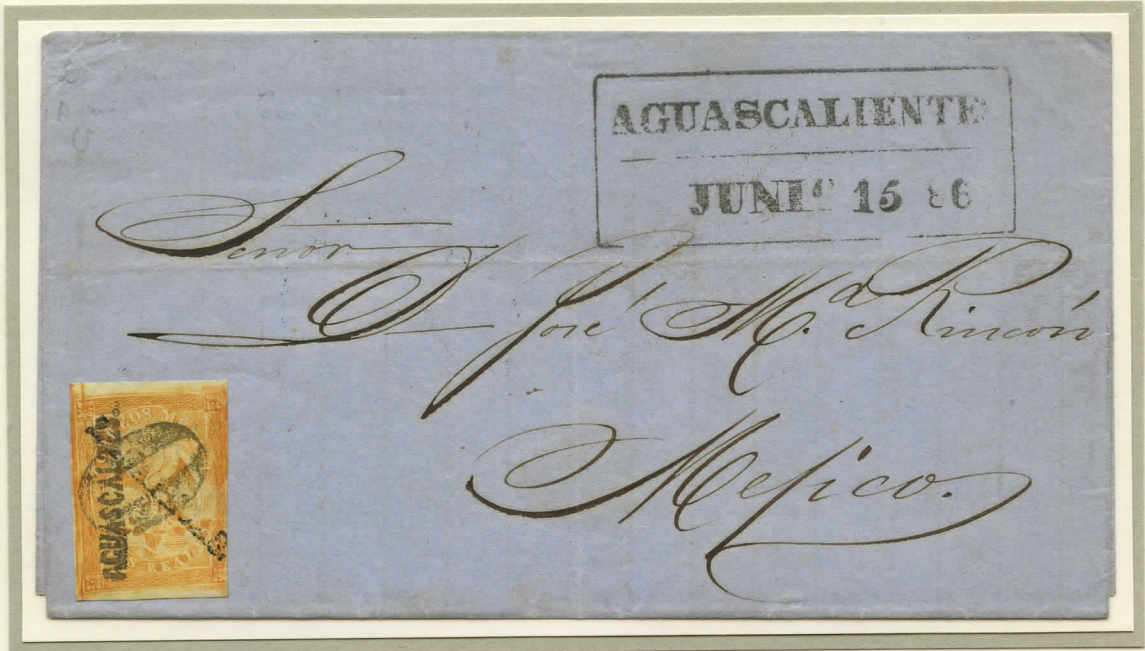 AGUASCALIENTE
JUNIº 15 86
Señor
D José M.ª Rincón
Mejico.
AGUASCALIENTES.
REAL